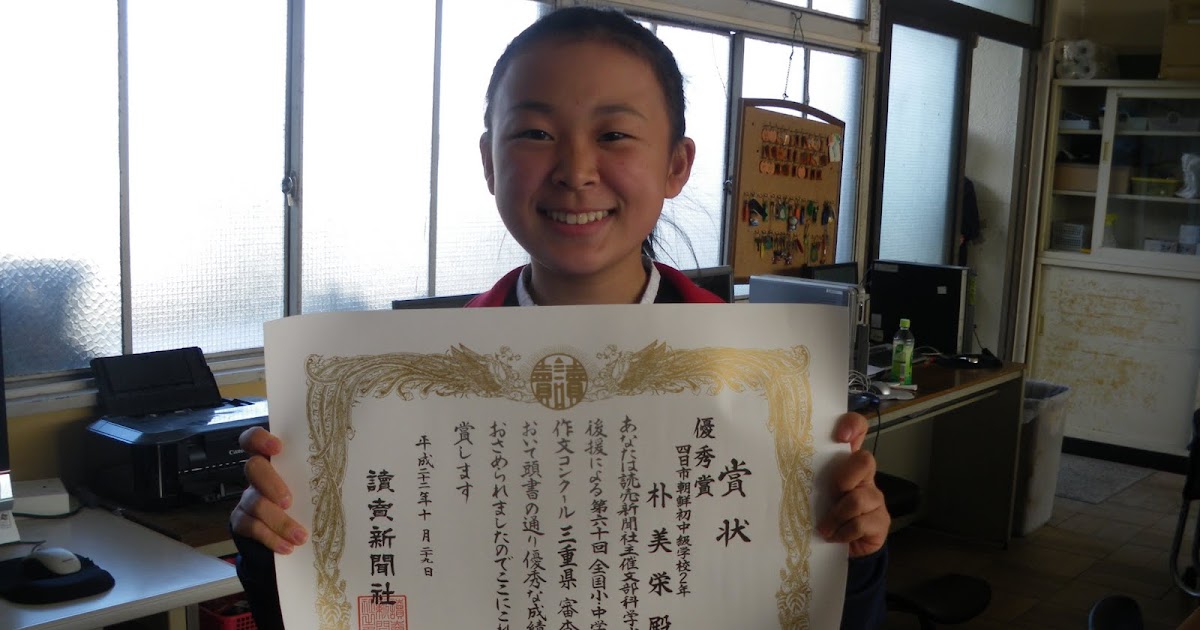 賞状
優秀賞
四日市朝鮮初中級学校2年
朴美栄殿
あなたは読売新聞社主催文部科学
後援による第六十回全国小中学
作文コンクール三重県審査
おいて頭書の通り優秀な成績
おさめられましたのでここにこれ
賞します
平成二十二年十月二十九日
讀賣新聞社
Canon